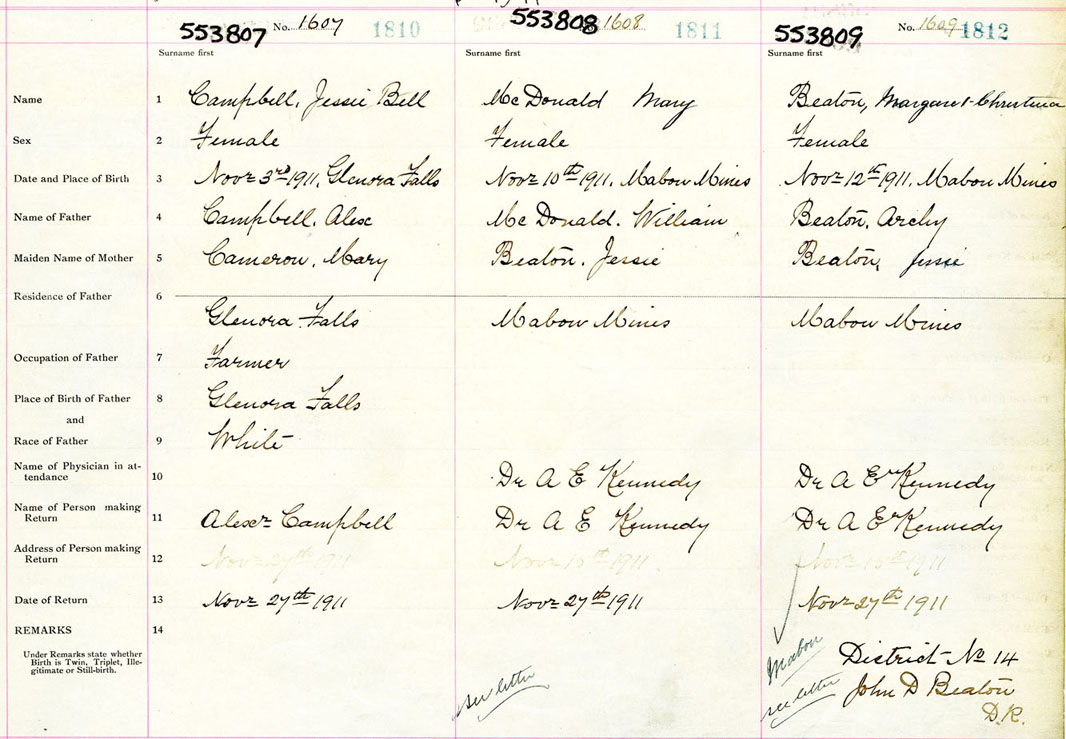 553807 No. 1607 1810 553808 1608 1811 553809 No. 1609 1812
Surname first Surname first Surname first
Name 1 Campbell, Jessie Bell McDonald Mary Beaton, Margaret Christena
Sex 2 Female Female Female
Date and Place of Birth 3 Novr 3rd 1911, Glenora Falls Novr 10th 1911, Mabou Mines Novr 12th 1911, Mabou Mines
Name of Father 4 Campbell, Alex McDonald. William Beaton, Archy
Maiden Name of Mother 5 Cameron, Mary Beaton. Jessie Beaton, Jessie
Residence of Father 6
Glenora Falls Mabou Mines Mabou Mines
Occupation of Father 7 Farmer
Place of Birth of Father 8 Glenora Falls
and
Race of Father 9 White
Name of Physician in at-
tendance 10 Dr A E Kennedy Dr A E Kennedy
Name of Person making
Return 11 Alexr Campbell Dr A E Kennedy Dr A E Kennedy
Address of Person making
Return 12 Novr 27th 1911 1911 1911
Date of Return 13 Novr 27th 1911 Novr 27th 1911 Novr 27th 1911
REMARKS 14
Under Remarks state whether
Birth is Twin, Triplet, Ille-
gitimate or Still-birth.
see letter
Mabou
see letter
District No 14
John D Beaton
D.R.